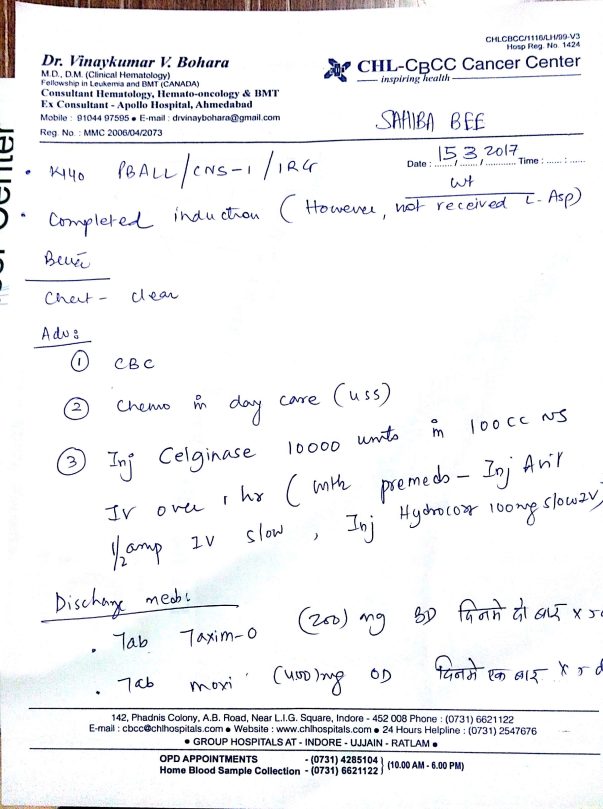 CHLCBCC/1116/LH/99-V3
Hosp Reg. No. 1424
Dr. Vinaykumar V. Bohara
M.D., D.M. (Clinical Hematology)
Fellowship in Leukemia and BMT (CANADA)
Consultant Hematology, Hemato-oncology & BMT
Ex Consultant - Apollo Hospital, Ahmedabad
Mobile : 91044 97595 • E-mail : drvinaybohara@gmail.com
Reg. No. : MMC 2006/04/2073
CHL-CBCC Cancer Center
inspiring health
SAHIBA BEE
Date : 15/3/2017 Time : ...... : ......
wt
• K140 PBALL/CNS-1/IRG
• Completed induction (However, not received L-Asp)
Chest - clear
Adv:
① CBC
② Chemo in day care (USS)
③ Inj Celginase 10000 units in 100cc NS
IV over 1 hr (with premeds - Inj Avil
1/2 amp IV slow, Inj Hydrocort 100mg slow IV)
Discharge meds:
• Tab Taxim-O (200) mg BD दिनमे दो बार x
• Tab moxi (400)mg OD दिनमे एक बार x
142, Phadnis Colony, A.B. Road, Near L.I.G. Square, Indore - 452 008 Phone : (0731) 6621122
E-mail : cbcc@chlhospitals.com • Website : www.chlhospitals.com • 24 Hours Helpline : (0731) 2547676
• GROUP HOSPITALS AT - INDORE - UJJAIN - RATLAM •
OPD APPOINTMENTS - (0731) 4285104
Home Blood Sample Collection - (0731) 6621122 } (10.00 AM - 6.00 PM)